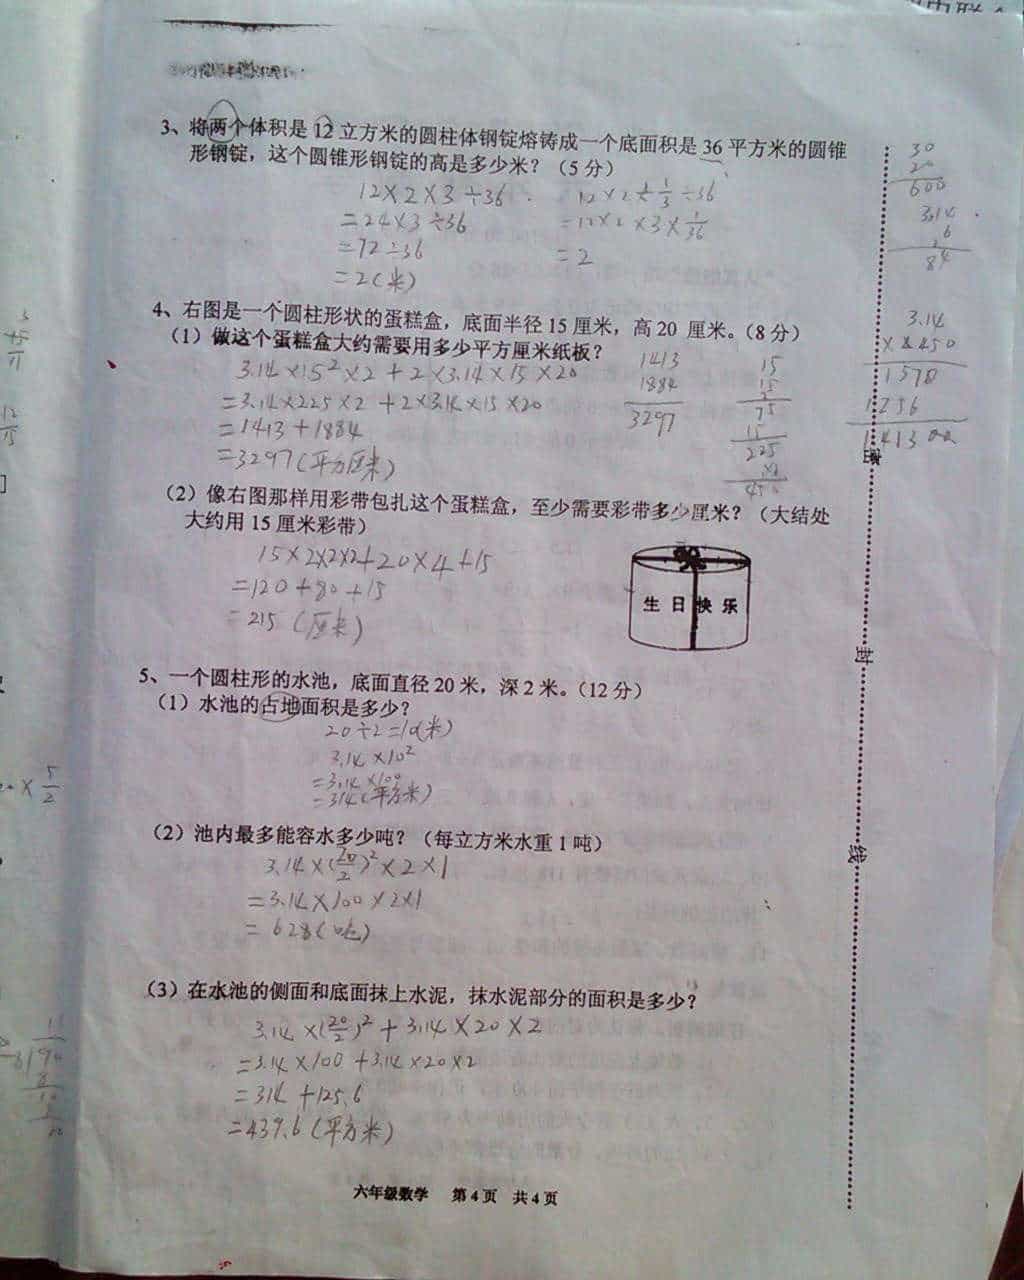 3、将两个体积是12立方米的圆柱体钢锭熔铸成一个底面积是36平方米的圆锥
形钢锭，这个圆锥形钢锭的高是多少米？（5分）
12×2×3÷36
=24×3÷36
=72÷36
=2(米)
12×2÷1/3÷36
=12×2×3×1/36
=2
30
20
600
3.14
6
84
4、右图是一个圆柱形状的蛋糕盒，底面半径15厘米，高20 厘米。（8分）
（1）做这个蛋糕盒大约需要用多少平方厘米纸板？
3.14×15²×2+2×3.14×15×20
=3.14×225×2+2×3.14×15×20
=1413+1884
=3297(平方厘米)
1413
1884
3297
15
15
75
15
225
3.14
×450
1570
1256
（2）像右图那样用彩带包扎这个蛋糕盒，至少需要彩带多少厘米？（大结处
大约用15厘米彩带）
15×2×2×2+20×4+15
=120+80+15
=215（厘米）
生日快乐
5、一个圆柱形的水池，底面直径20米，深2米。（12分）
（1）水池的占地面积是多少？
20÷2=10(米)
3.14×10²
=3.14×100
=314(平方米)
（2）池内最多能容水多少吨？（每立方米水重1吨）
3.14×(20/2)²×2×1
=3.14×100×2×1
=628(吨)
（3）在水池的侧面和底面抹上水泥，抹水泥部分的面积是多少？
3.14×(20/2)²+3.14×20×2
=3.14×100+3.14×20×2
=314+125.6
=439.6(平方米)
六年级数学 第4页 共4页
密
封
线
12/15
×5/2